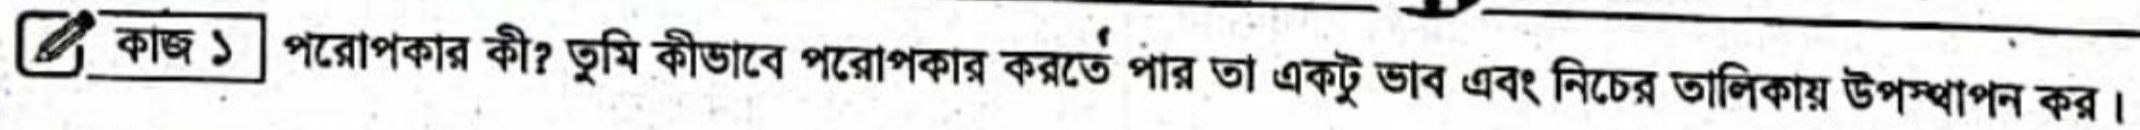 কাজ ১ পরোপকার কী? তুমি কীভাবে পরোপকার করতে পার তা একটু ভাব এবং নিচের তালিকায় উপস্থাপন কর।